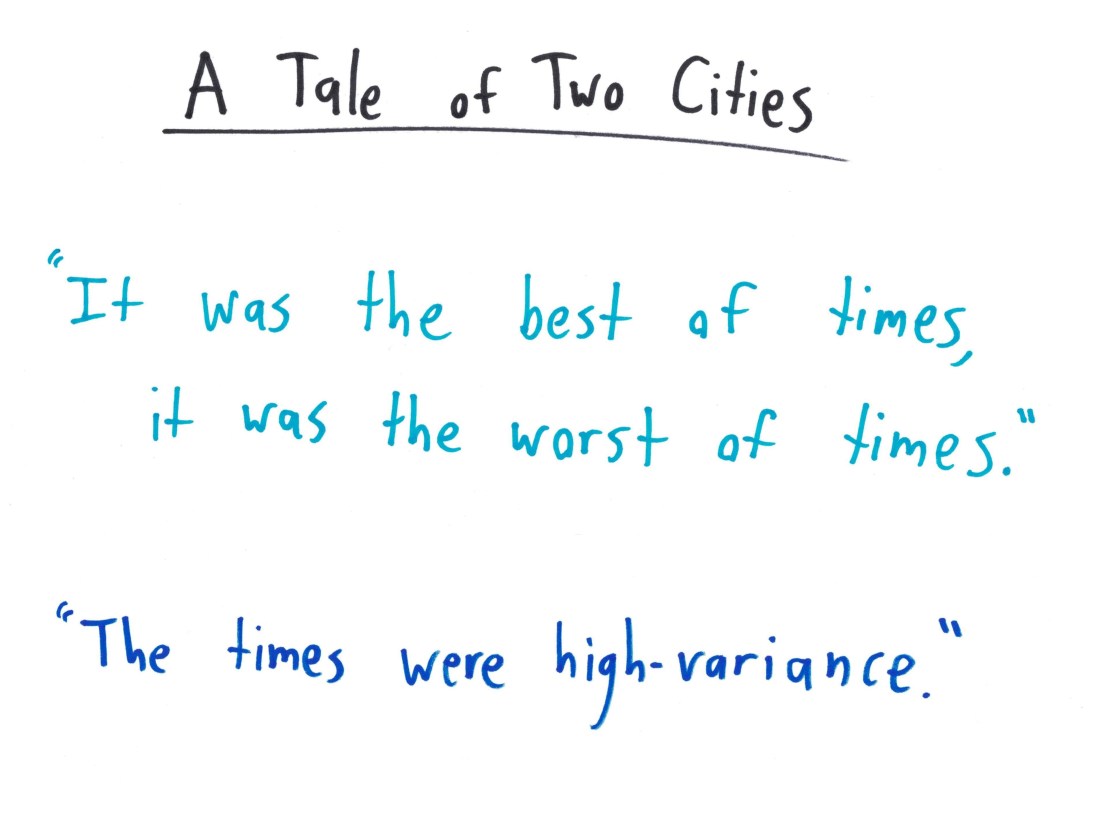 A Tale of Two Cities
"It was the best of times,
it was the worst of times."
"The times were high-variance."